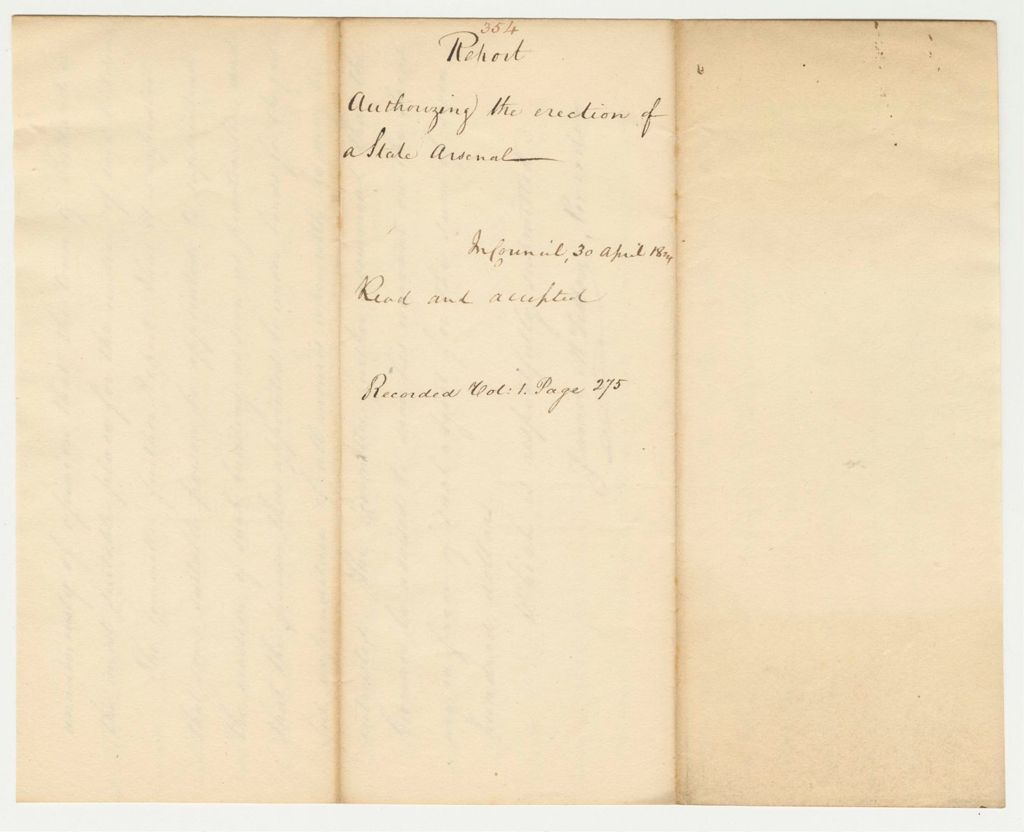 354
Report
Authorizing the erection of
a State Arsenal
In Council, 30 April 18
Read and accepted
Recorded Vol: 1. Page 275